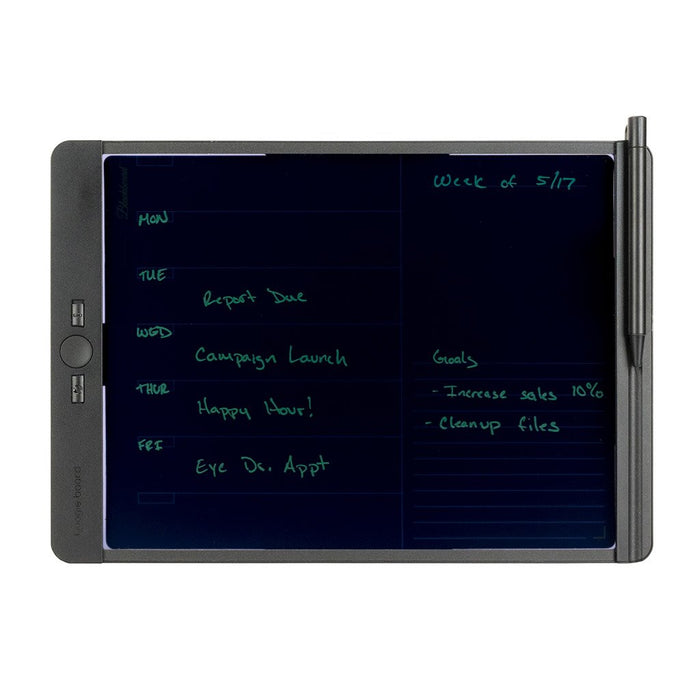 Blackboard
Week of 5/17
MON
TUE
Report Due
WED
Campaign Launch
THUR
Happy Hour!
FRI
Eye Dr. Appt
Goals
- Increase sales 10%
- Cleanup files
boogie board